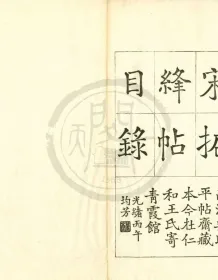 宋拓
絳帖
目錄
平帖齋藏
本今杜仁
和王氏寄
青霞館
光緒丙午